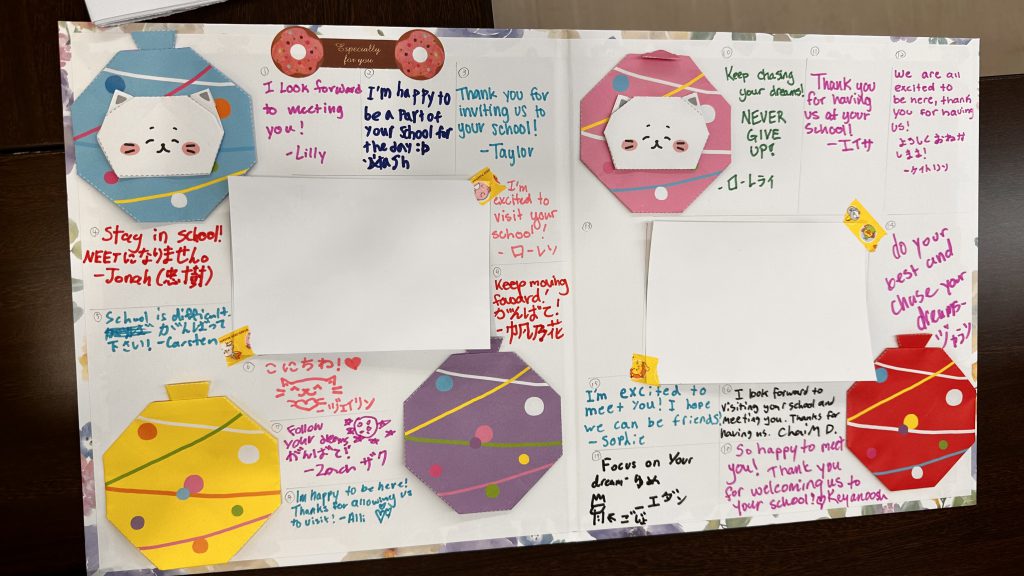 Especially
for you
①
I Look forward
to meeting
you!
-Lilly
②
I'm happy to
be a part of
your school for
the day :D
③
Thank you for
inviting us to
your school!
-Taylor
I'm
excited to
visit your
school!
-ローレン
Stay in school!
NEETになりません。
-Jonah (忠樹)
School is difficult.
がんばって
下さい! -Carsten
Keep moving
forward!
がんばて!
こにちわ!♡
Follow
your dreams
がんばて!
-Zarah ザラ
Im happy to be here!
Thanks for allowing us
to visit! -Alli
⑩
Keep chasing
your dreams!
NEVER
GIVE
UP!
-ローレライ
⑪
Thank you
for having
us at your
School!
-エイサ
⑫
We are all
excited to
be here, thank
you for having
us!
よろしくおねがい
します!
-ケイトリン
⑬
⑭
do your
best and
chase your
dreams-
⑮
I'm excited to
meet You! I hope
we can be friends!
-Sophie
⑯
I look forward to
visiting your school and
meeting you. Thanks for
having us. Chaim D.
⑰
Focus on Your
dream-ゆめ
-エダン
⑱
So happy to meet
you! Thank you
for welcoming us to
your school! Keyanoosh